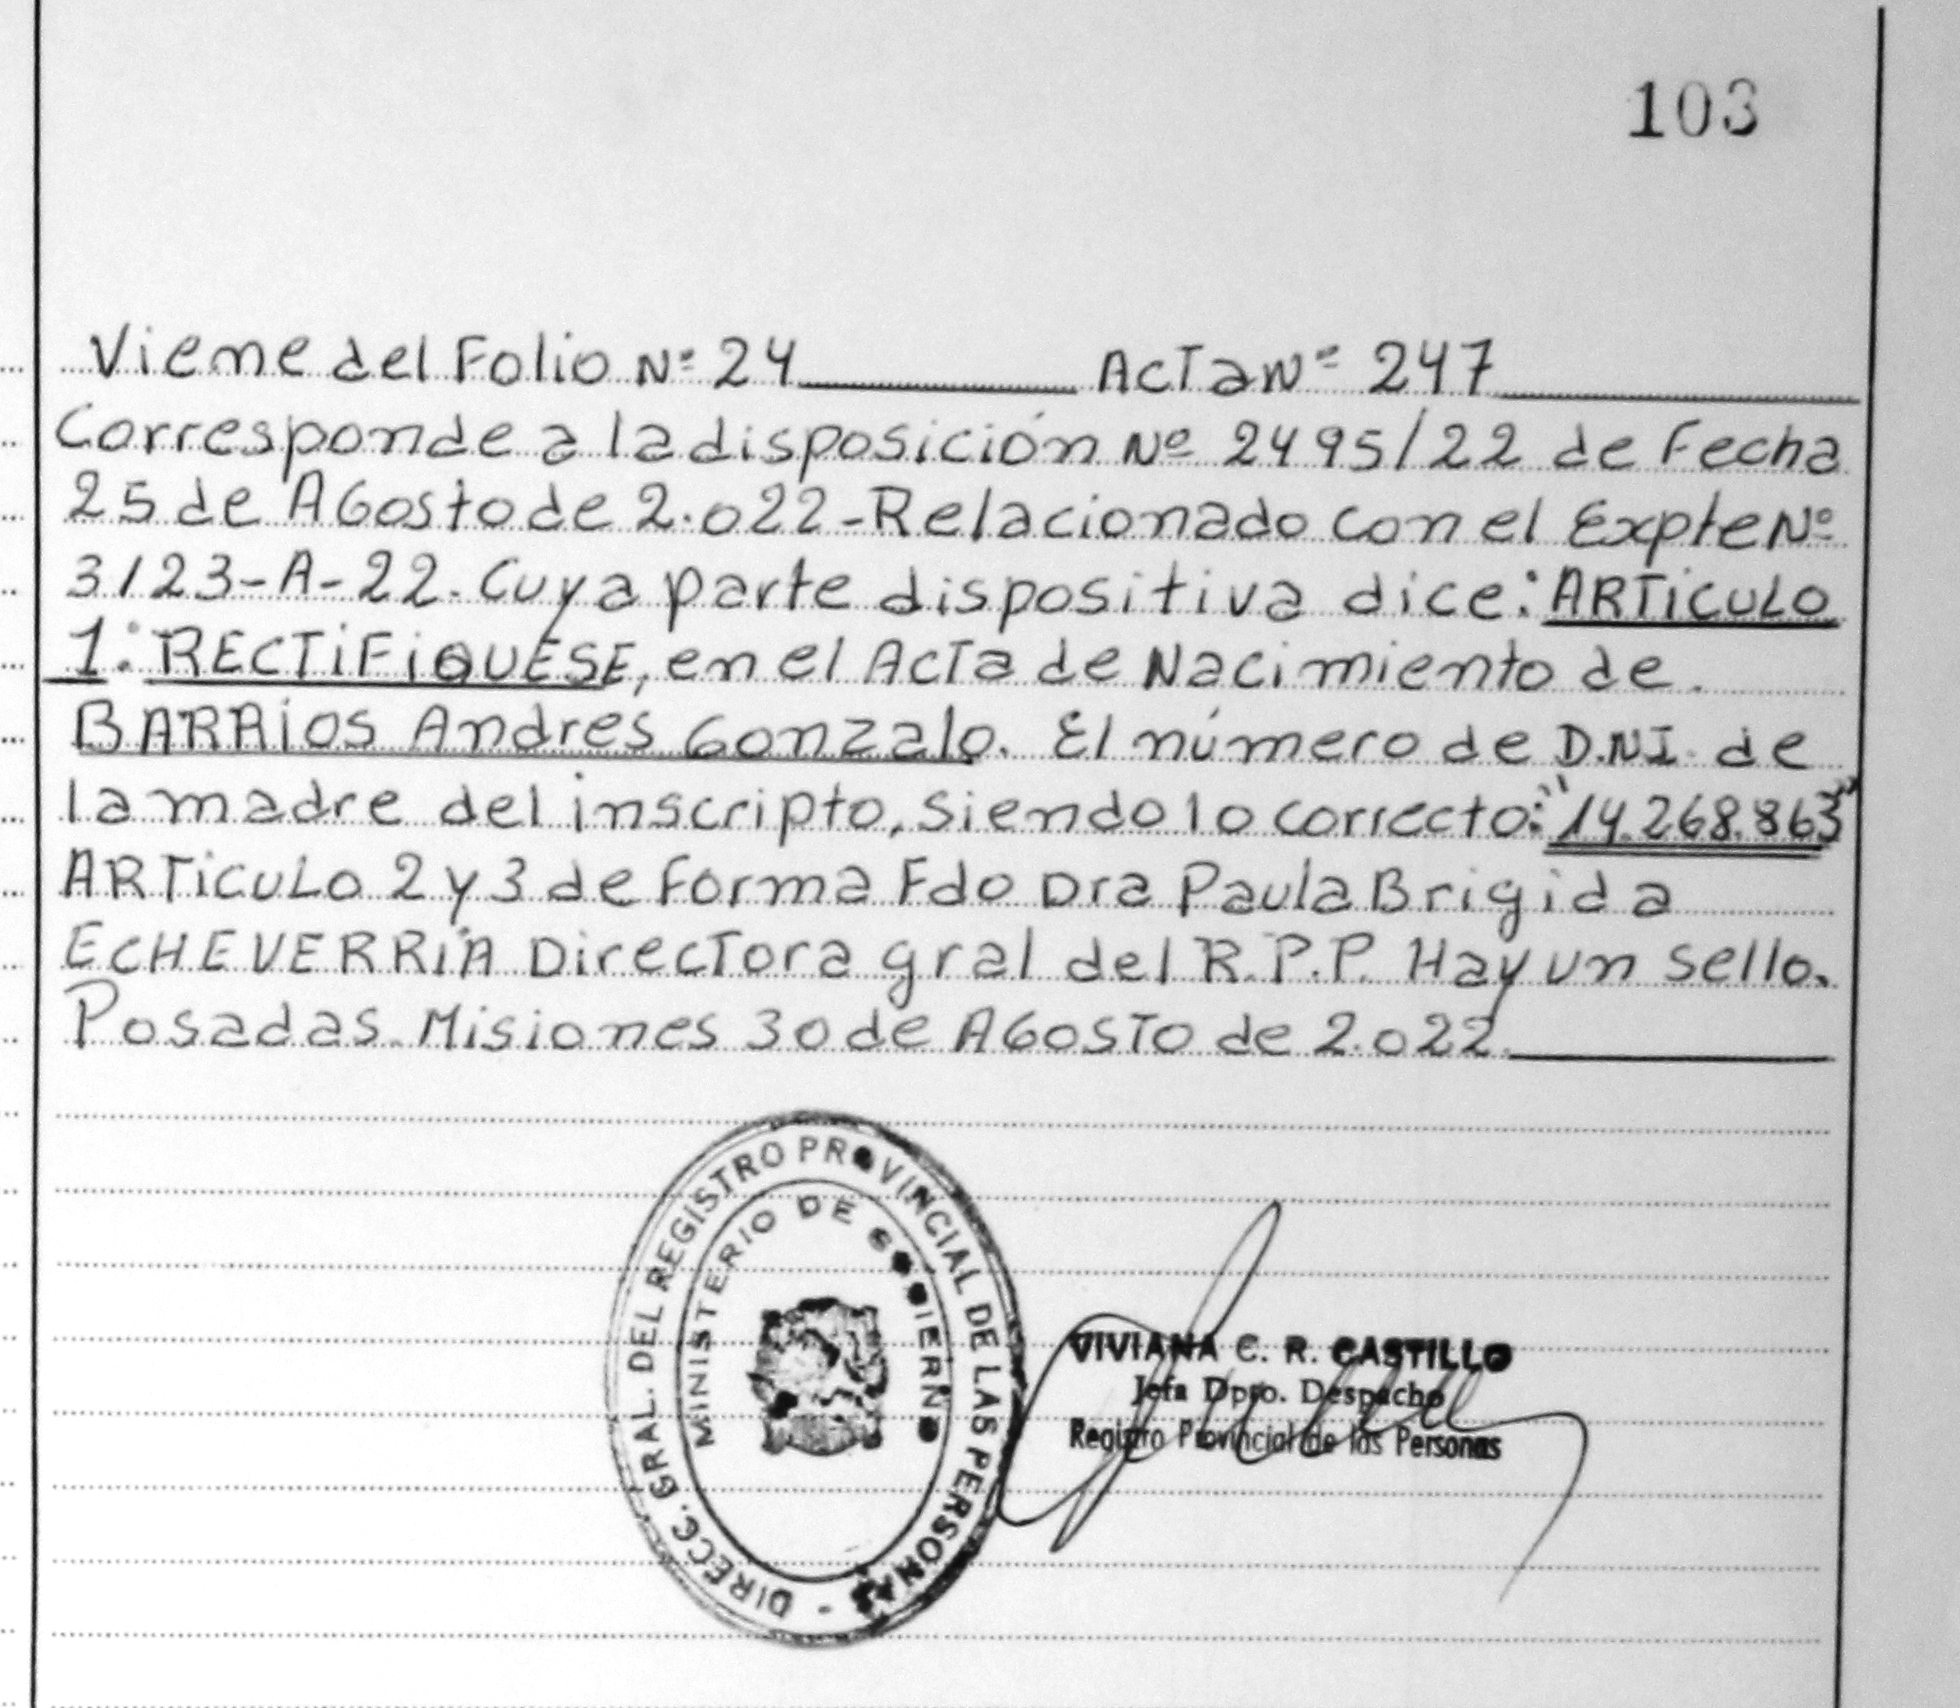 103
Viene del Folio Nº 24 Acta Nº 247
Corresponde a la disposición Nº 2495/22 de Fecha
25 de AGosto de 2.022-Relacionado con el Expte Nº
3123-A-22. Cuya parte dispositiva dice: ARTiCULO
1º: RECTiFiQUESE, en el Acta de Nacimiento de
BARRiOS Andrés Gonzalo. El número de D.N.I. de
la madre del inscripto, siendo lo correcto: "14.268.863"
ARTiCULO 2 y 3 de Forma Fdo Dra Paula Brigida
ECHEVERRíA Directora gral del R.P.P. Hay un sello.
Posadas. Misiones 30 de AGosto de 2.022.
DIRECC. GRAL. DEL REGISTRO PROVINCIAL DE LAS PERSONAS -
MINISTERIO DE GOBIERNO
VIVIANA C. R. CASTILLO
Jefa Dpto. Despacho
Registro Provincial de las Personas